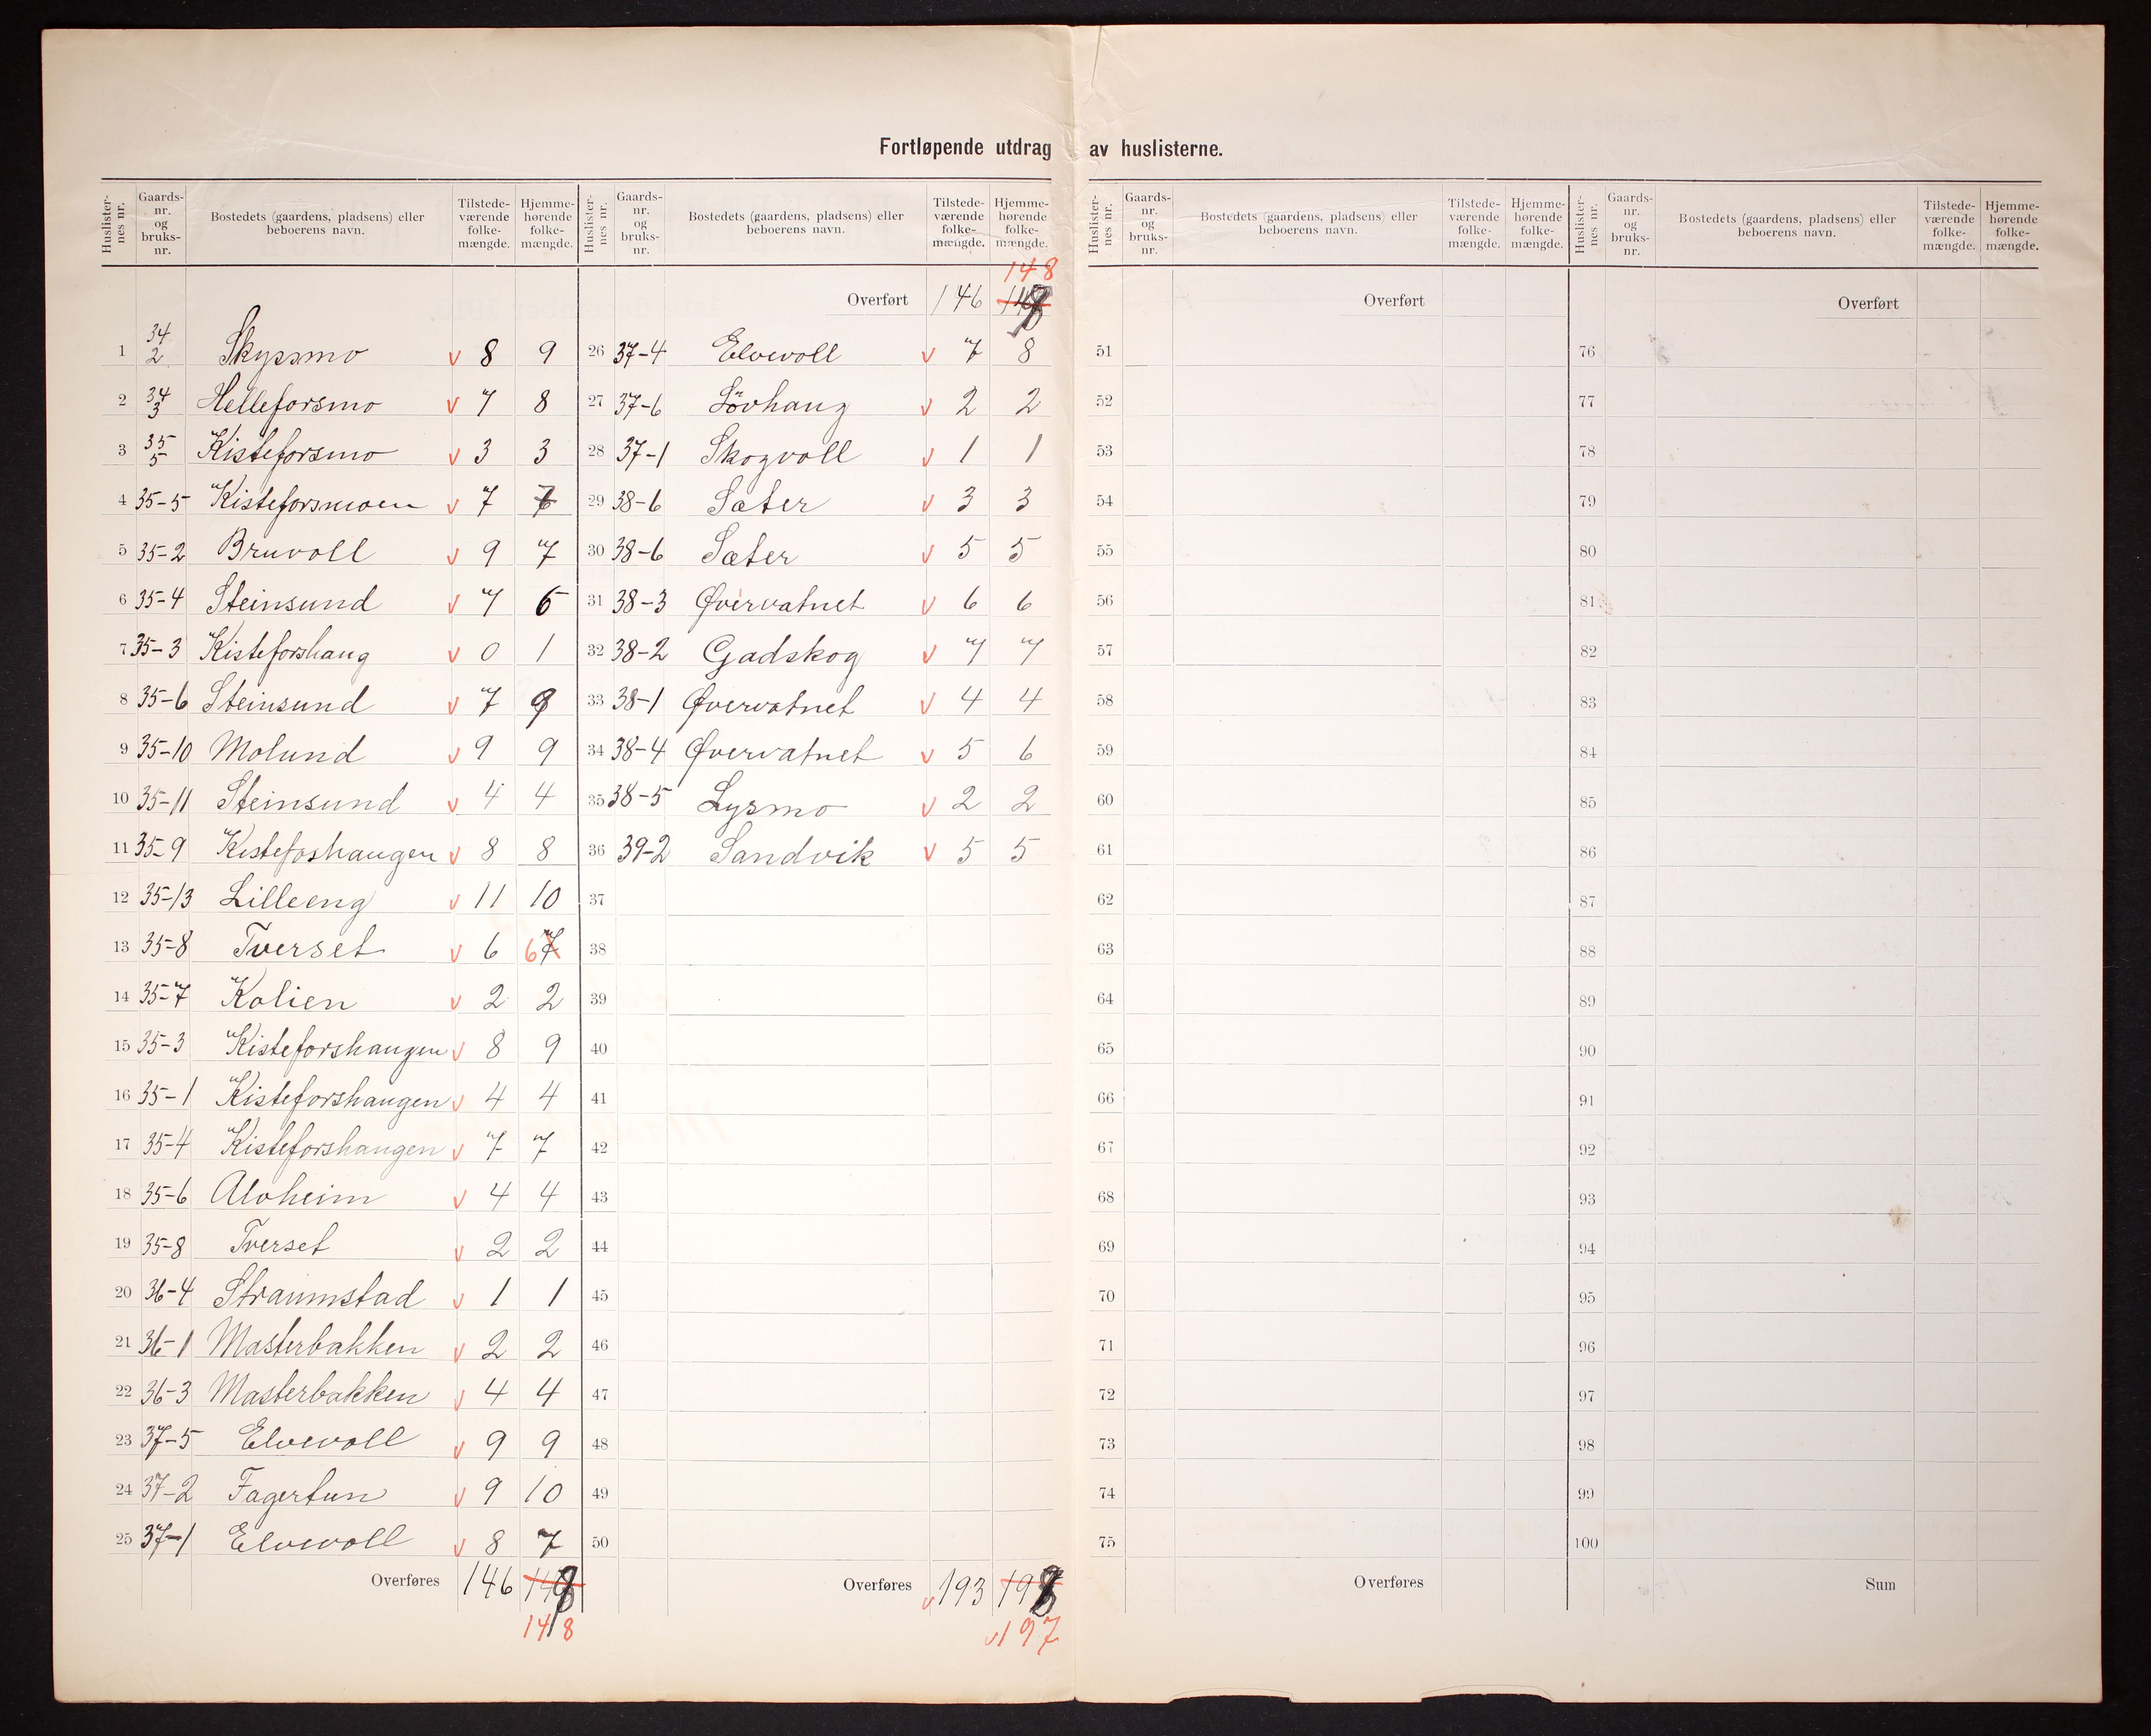 Fortløpende utdrag av huslisterne.
Huslisternes nr. Gaards-nr. og bruks-nr. Bostedets (gaardens, pladsens) eller beboerens navn. Tilstede-værende folke-mængde. Hjemme-hørende folke-mængde.
1 34 2 Skyssmo v 8 9
2 34 3 Helleforsmo v 7 8
3 35 5 Kisteforsmo v 3 3
4 35-5 Kisteforsmoen v 7 7
5 35-2 Bruvoll v 9 7
6 35-4 Steinsund v 7 6
7 35-3 Kisteforshaug v 0 1
8 35-6 Steinsund v 7 9
9 35-10 Molund v 9 9
10 35-11 Steinsund v 4 4
11 35-9 Kisteforshaugen v 8 8
12 35-13 Lilleeng v 11 10
13 35-8 Tverset v 6 6 7
14 35-7 Kolien v 2 2
15 35-3 Kisteforshaugen v 8 9
16 35-1 Kisteforshaugen v 4 4
17 35-4 Kisteforshaugen v 7 7
18 35-6 Alvheim v 4 4
19 35-8 Tverset v 2 2
20 36-4 Straumstad v 1 1
21 36-1 Masterbakken v 2 2
22 36-3 Masterbakken v 4 4
23 37-5 Elvevoll v 9 9
24 37-2 Fagertun v 9 10
25 37-1 Elvevoll v 8 7
Overføres 146
148
Huslisternes nr. Gaards-nr. og bruks-nr. Bostedets (gaardens, pladsens) eller beboerens navn. Tilstede-værende folke-mængde. Hjemme-hørende folke-mængde.
148
Overført 146
26 37-4 Elvevoll v 7 8
27 37-6 Lövhaug v 2 2
28 37-1 Skogvoll v 1 1
29 38-6 Sæter v 3 3
30 38-6 Sæter v 5 5
31 38-3 Øvervatnet v 6 6
32 38-2 Gadskog v 7 7
33 38-1 Øvervatnet v 4 4
34 38-4 Øvervatnet v 5 6
35 38-5 Lysmo v 2 2
36 39-2 Sandvik v 5 5
37
38
39
40
41
42
43
44
45
46
47
48
49
50
Overføres v 193
v 197
Huslisternes nr. Gaards-nr. og bruks-nr. Bostedets (gaardens, pladsens) eller beboerens navn. Tilstede-værende folke-mængde. Hjemme-hørende folke-mængde.
Overført
51
52
53
54
55
56
57
58
59
60
61
62
63
64
65
66
67
68
69
70
71
72
73
74
75
Overføres
Huslisternes nr. Gaards-nr. og bruks-nr. Bostedets (gaardens, pladsens) eller beboerens navn. Tilstede-værende folke-mængde. Hjemme-hørende folke-mængde.
Overført
76
77
78
79
80
81
82
83
84
85
86
87
88
89
90
91
92
93
94
95
96
97
98
99
100
Sum